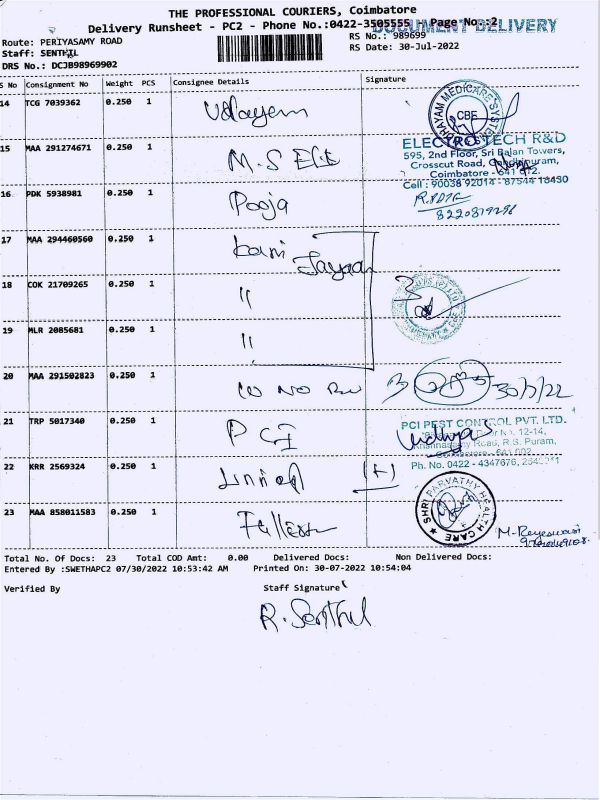 THE PROFESSIONAL COURIERS, Coimbatore
Delivery Runsheet - PC2 - Phone No.:0422-3505555 Page No.:2
DOCUMENT DELIVERY
Route: PERIYASAMY ROAD
RS No.: 989699
Staff: SENTHIL
RS Date: 30-Jul-2022
DRS No.: DCJB98969902
S No Consignment No Weight PCS Consignee Details Signature
14 TCG 7039362 0.250 1 Udayem
CBE
15 MAA 291274671 0.250 1 M.S Elit
ELECTROTECH R&D
595, 2nd Floor, Sri Balan Towers,
Crosscut Road, Gandhipuram,
Coimbatore - 641 012.
Cell : 90038 92014 - 87544 18430
16 PDK 5938981 0.250 1 Pooja
8220819298
17 MAA 294460560 0.250 1 kani Jayaan
18 COK 21709265 0.250 1 "
19 MLR 2085681 0.250 1 "
20 MAA 291502823 0.250 1
30/7/22
21 TRP 5017340 0.250 1 PCI
PCI PEST CONTROL PVT. LTD.
Door No. 12-14,
Krishnasamy Road, R.S. Puram,
Coimbatore - 641 002
Ph. No. 0422 - 4347676,
Vidhya S
22 KRR 2569324 0.250 1
23 MAA 858011583 0.250 1
SHRI PARVATHY HEALTH CARE
M. Rajeswari
Total No. Of Docs: 23 Total COD Amt: 0.00 Delivered Docs: Non Delivered Docs:
Entered By :SWETHAPC2 07/30/2022 10:53:42 AM Printed On: 30-07-2022 10:54:04
Verified By Staff Signature
R. Senthil